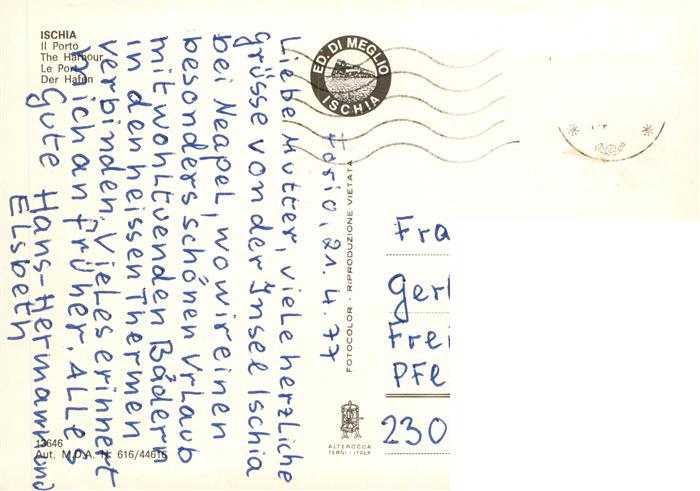 ISCHIA
Il Porto
The Harbour
Le Port
Der Hafen
ED. DI MEGLIO
ISCHIA
Forio, 21.4.77
Liebe Mutter, viele herzliche
Grüsse von der Insel Ischia
bei Neapel, wo wir einen
besonders schönen Urlaub
mit wohltuenden Bädern
in den heissen Thermen
verbinden. Vieles erinnert
mich an früher. Alles
Gute Hans-Hermann und
Elsbeth
FOTOCOLOR - RIPRODUZIONE VIETATA
Fra
Gerl
Frei
Pfle
230
ALTEROCCA
TERNI - ITALY
Aut. M.D.A. N. 616/44616